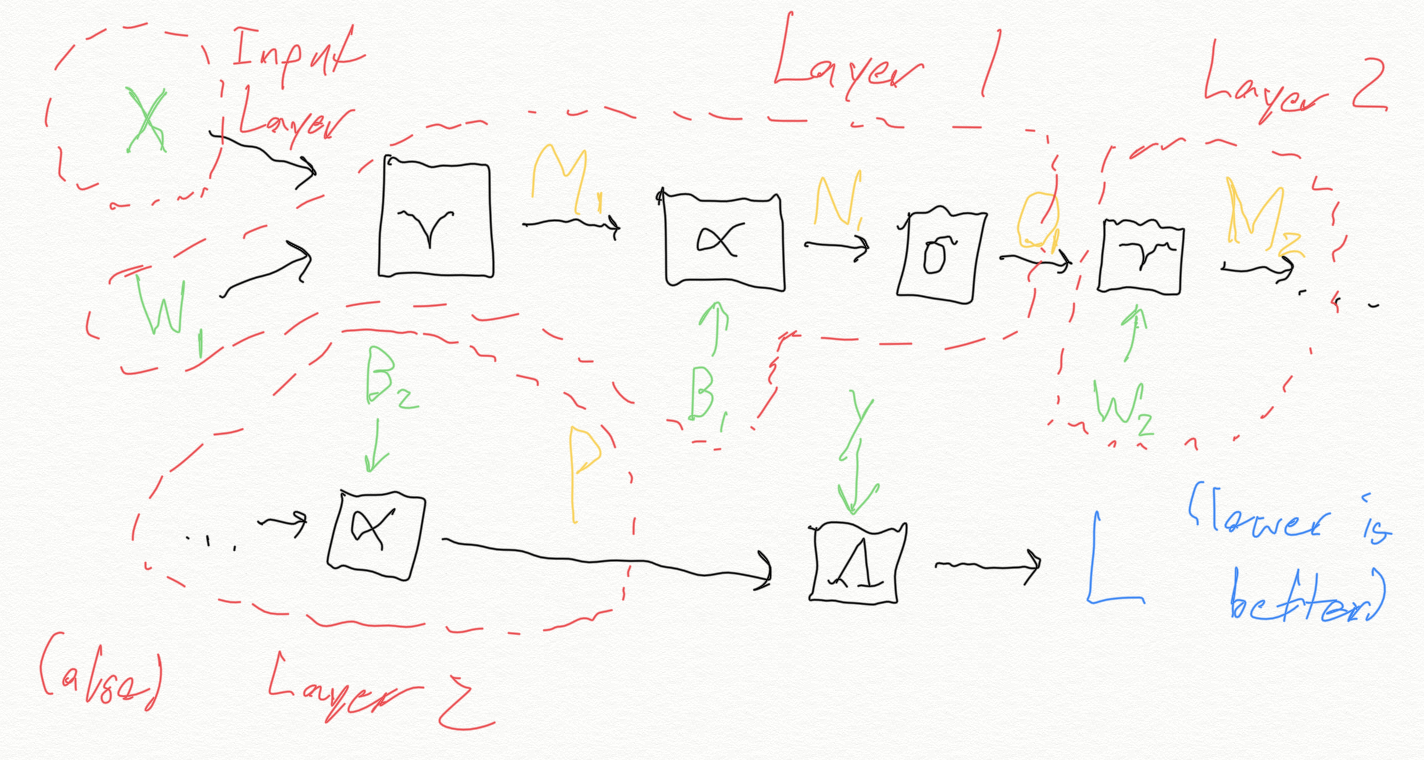 Input
Layer
X
Layer 1
Layer 2
γ
M₁
α
N₁
σ
O₁
γ
M₂
...
W₁
B₁
W₂
B₂
P
y
...
α
Λ
L
(lower is
better)
(also) Layer 2